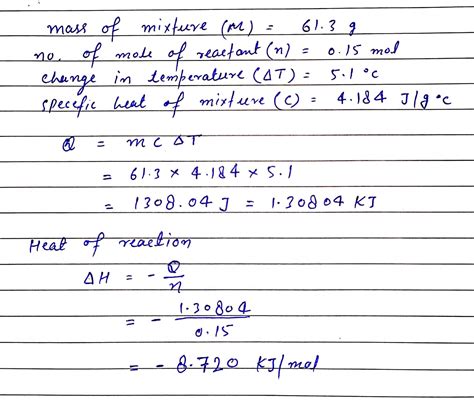 mass of mixture (M) = 61.3 g
no. of mole of reactant (n) = 0.15 mol
change in temperature (ΔT) = 5.1 °C
specefic heat of mixture (C) = 4.184 J/g °C
Q = m C ΔT
= 61.3 × 4.184 × 5.1
= 1308.04 J = 1.30804 KJ
Heat of reaction
ΔH = - Q/n
= - 1.30804/0.15
= - 8.720 KJ/mol